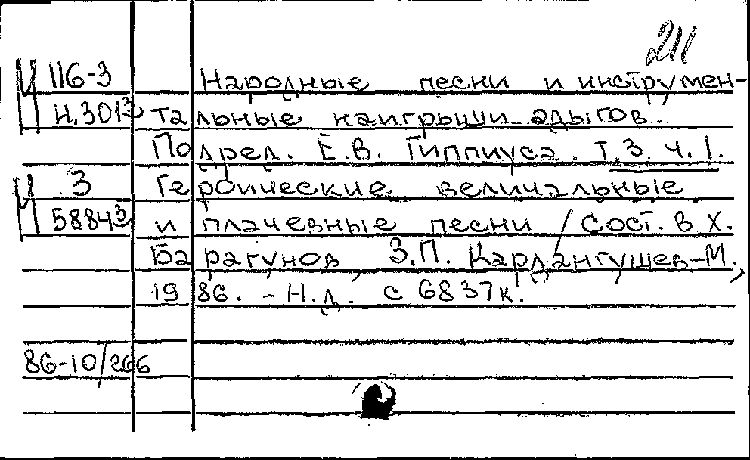 211
116-3 Народные песни и инструмен-
Н.3013 тальные наигрыши адыгов.
Под ред. Е.В. Гиппиуса. Т.3. ч.1.
3 Героические величальные
58843 и плачевные песни / Сост. В.Х.
Барагунов, З.П. Кардангушев-М.,
1986. - Н.д. с 6837к.
86-10/266